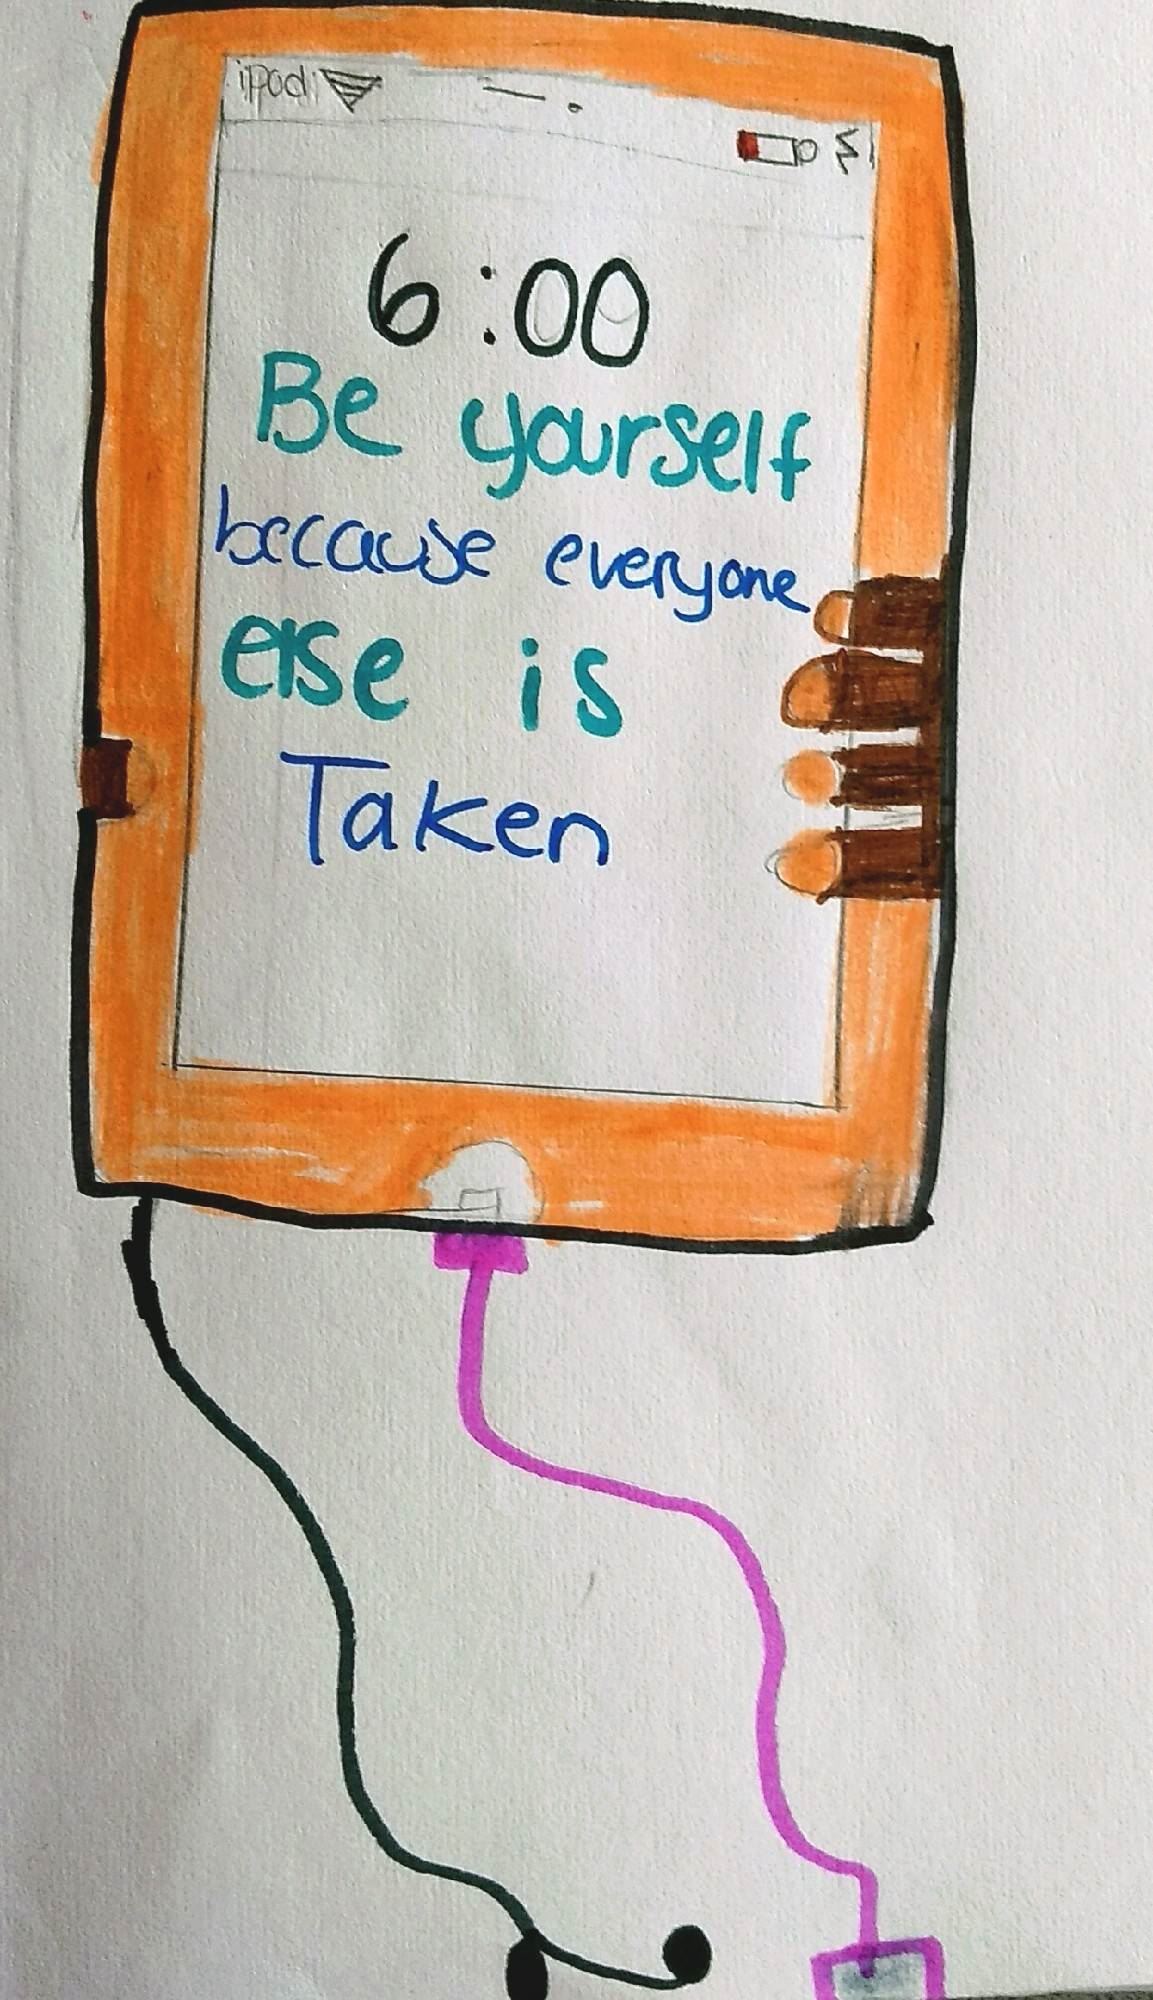 ipod
6:00
Be yourself
because everyone
else is
Taken